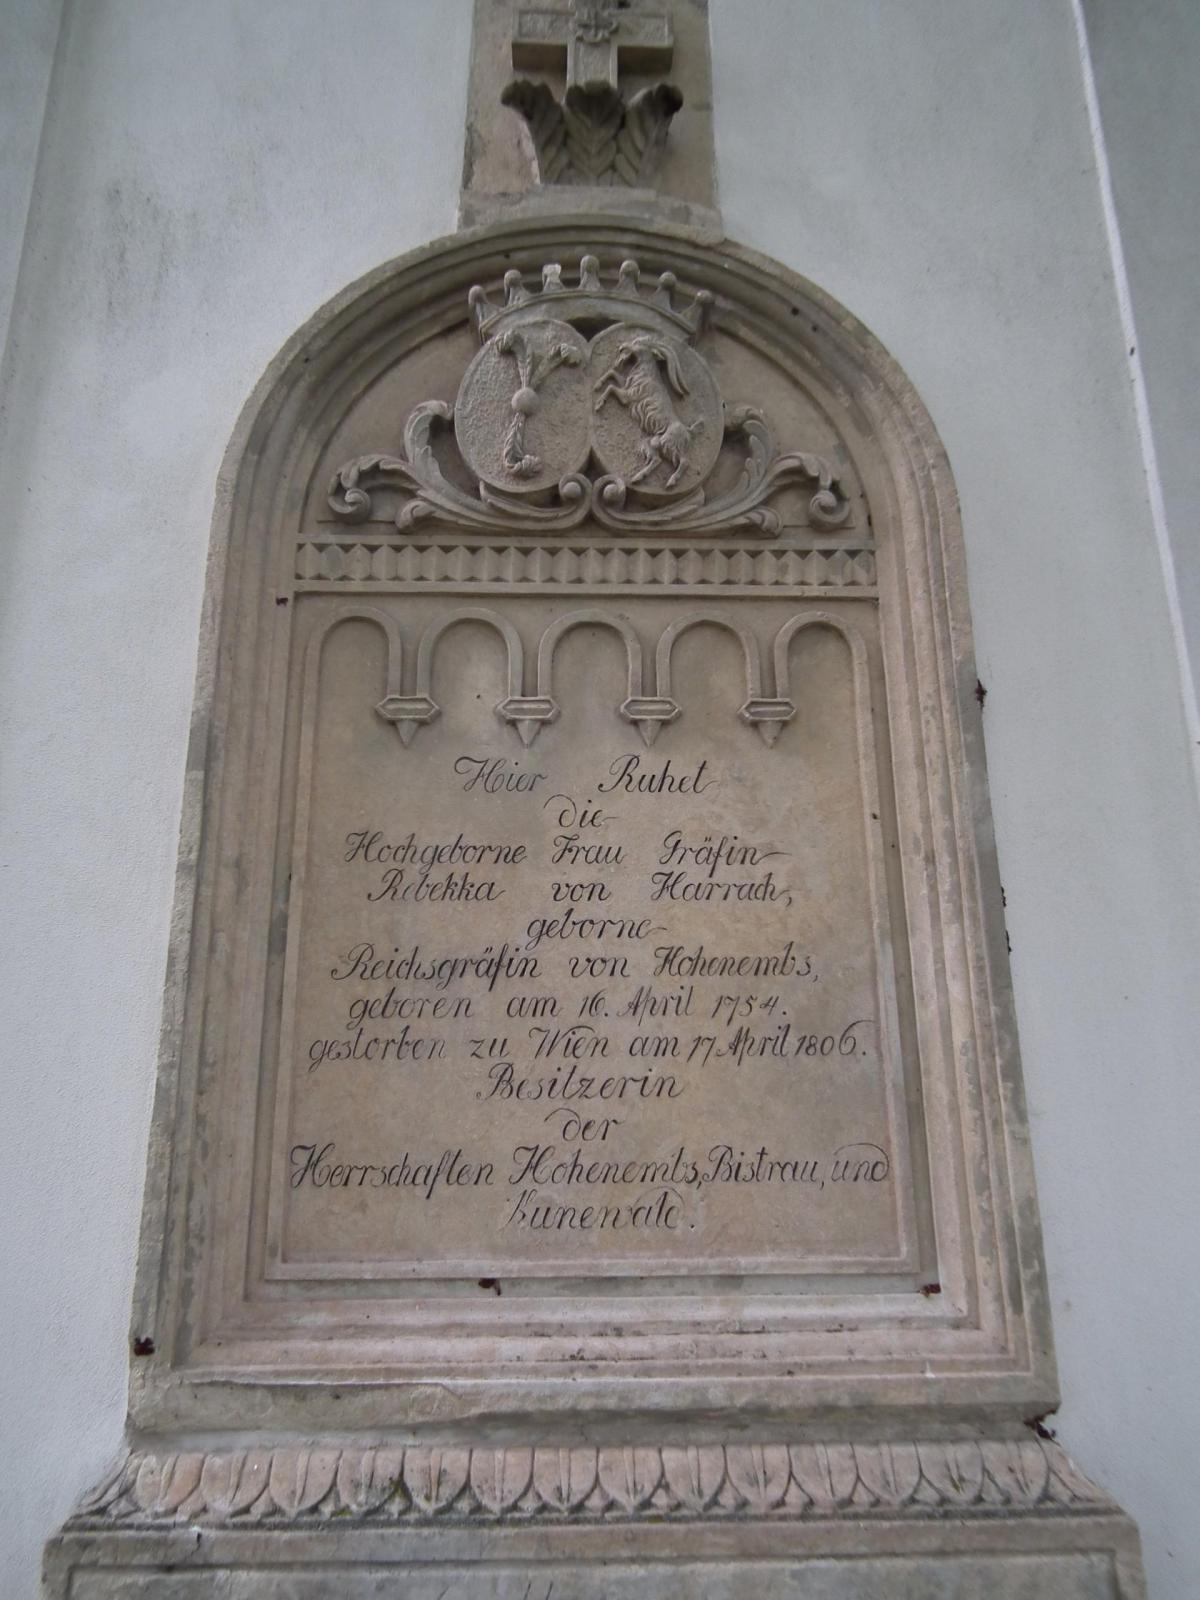 Hier Ruhet
die
Hochgeborne Frau Gräfin
Rebekka von Harrach,
geborne
Reichsgräfin von Hohenembs,
geboren am 16. April 1754.
gestorben zu Wien am 17 April 1806.
Besitzerin
der
Herrschaften Hohenembs, Bistrau, und
Kunewald.